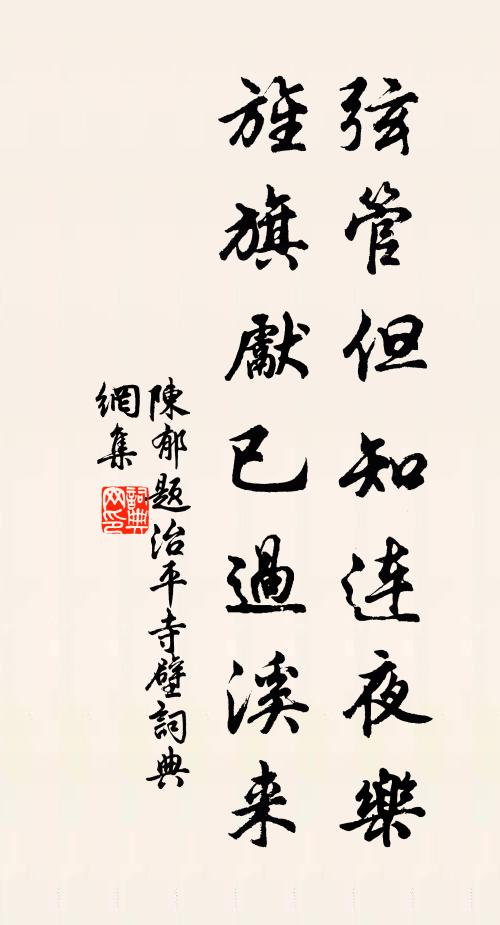 弦管但知連夜樂
旌旗獻已過溪来
陳郁題治平寺壁詞典
網集
詞典
网印